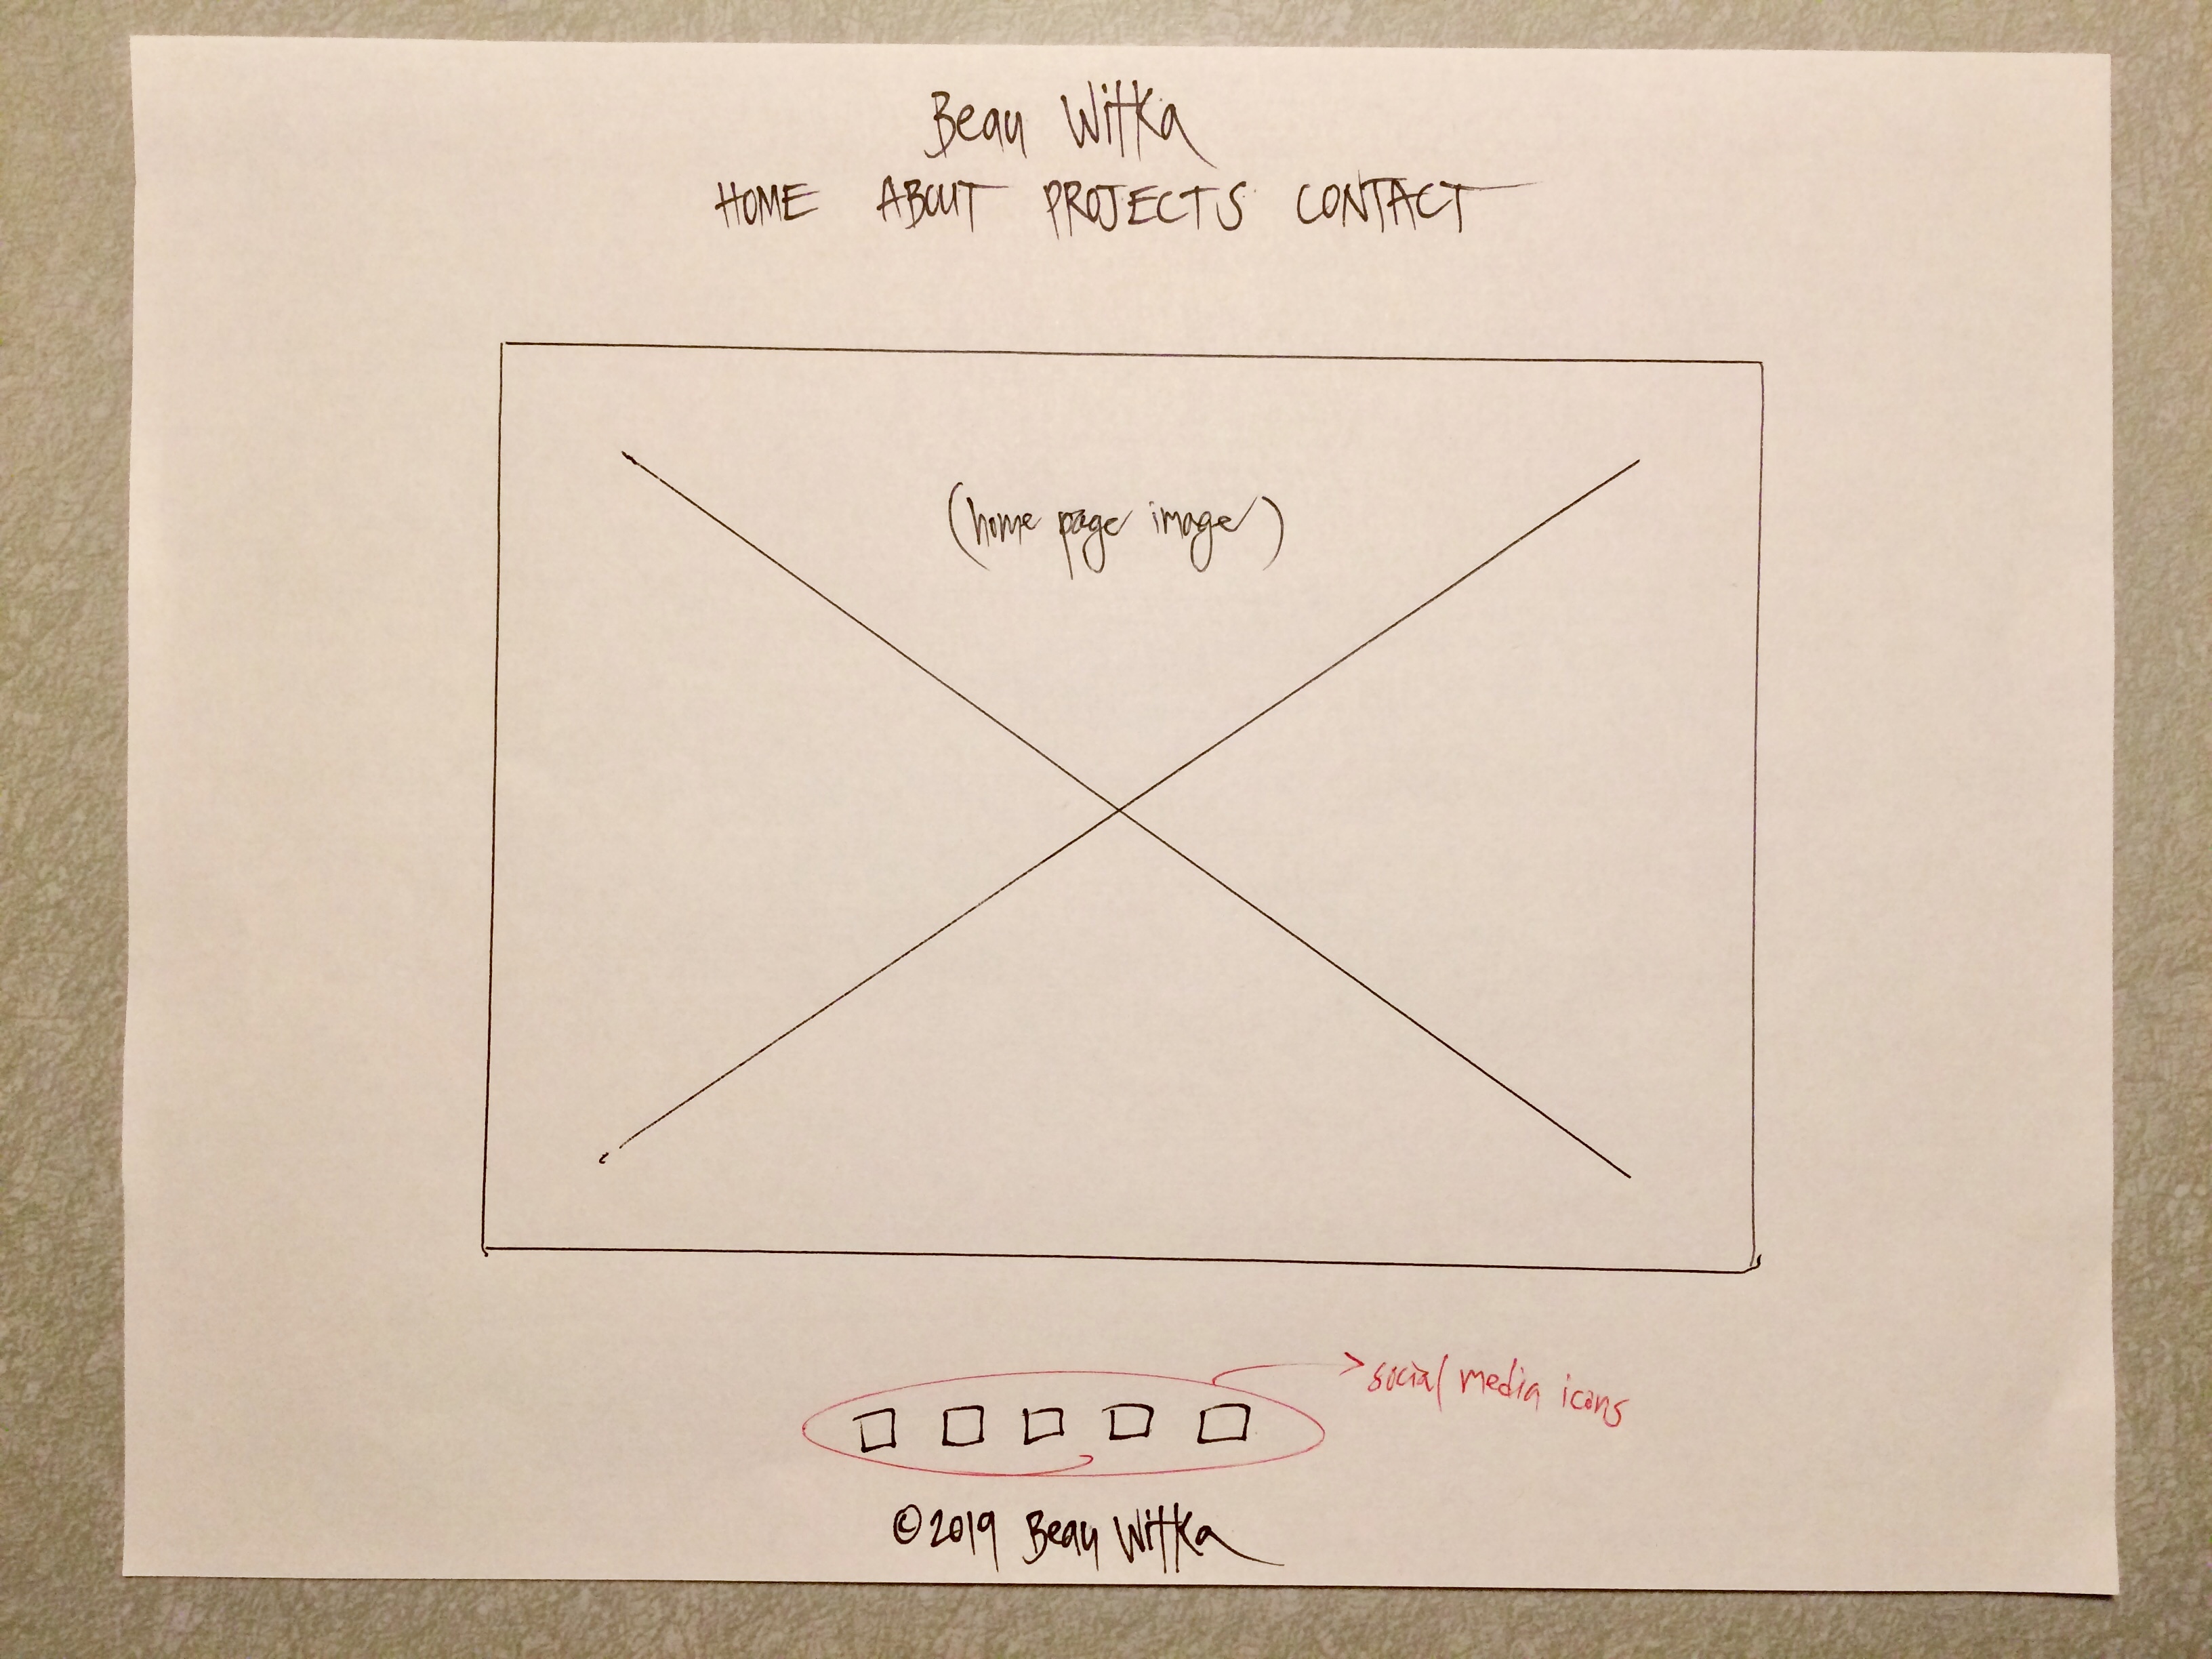 Beau Witka
HOME ABOUT PROJECTS CONTACT
(home page image)
social media icons
©2019 Beau Witka